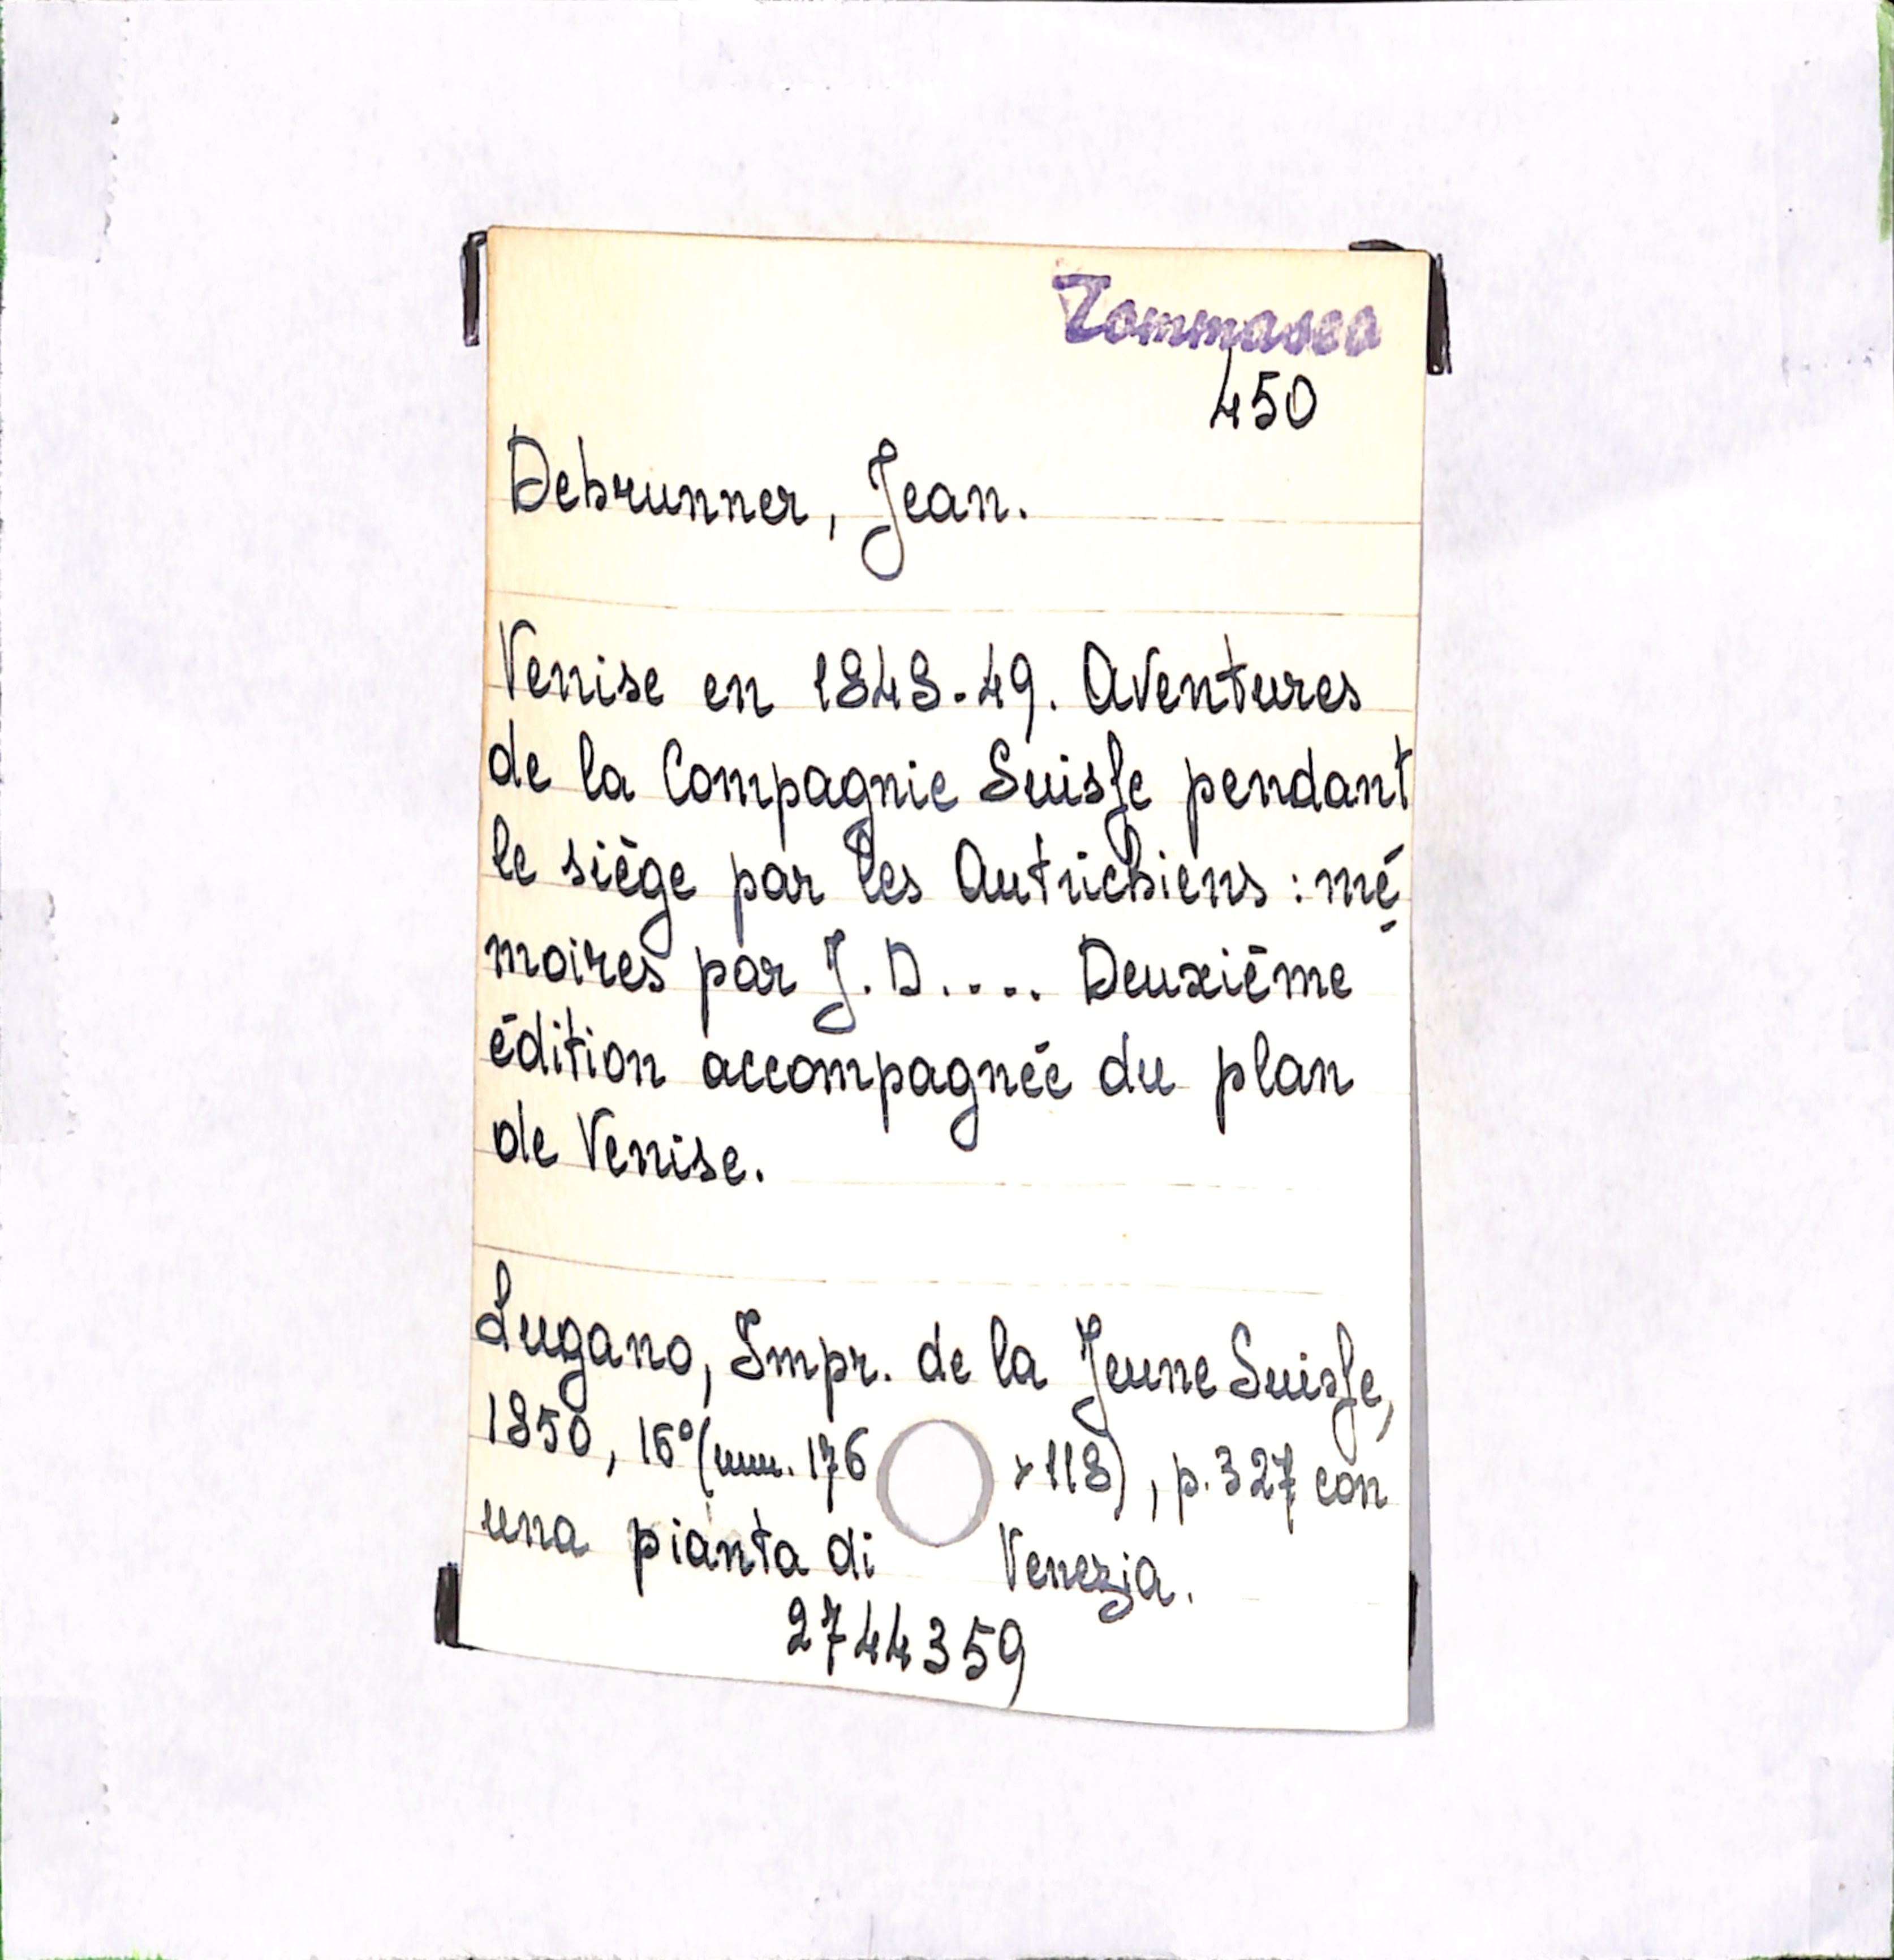 Tommaseo
450
Debrunner, Jean.
Venise en 1848-49. Aventures
de la Compagnie Suisse pendant
le siège par les Autrichiens : mé
moires par J. D.... Deuxiéme
édition accompagnée du plan
de Venise.
Lugano, Impr. de la Jeune Suisse,
1850, 16° (mm. 176 x 118), p. 327 con
una pianta di Venezia.
2744359